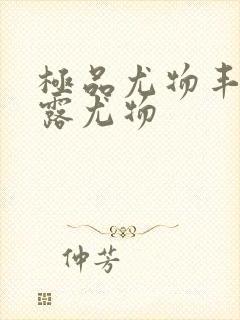 極品尤物丰
露尤物
仲芳